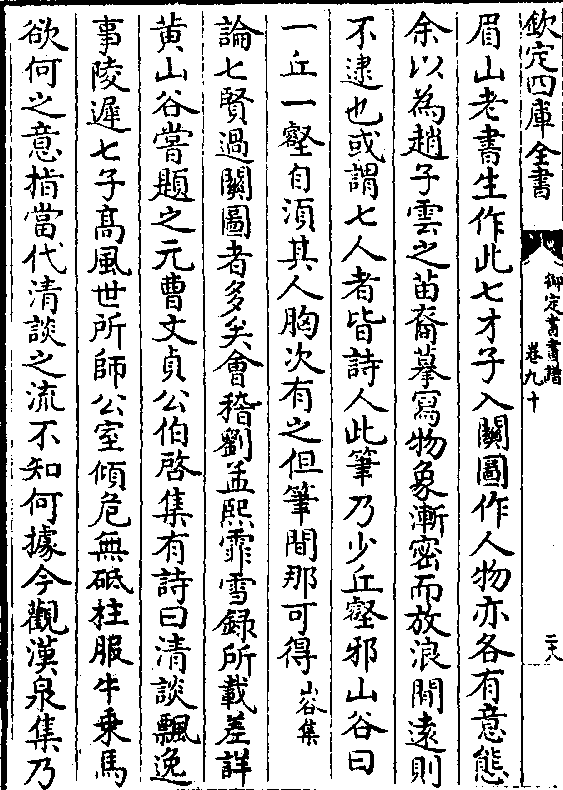 欽定四庫全書
御定書畫譜
卷九十
二十八
眉山老書生作此七才子入關圖作人物亦各有意態
余以為趙子雲之苗裔摹寫物象漸密而放浪閒遠則
不逮也或謂七人者皆詩人此筆乃少丘壑邪山谷曰
一丘一壑自湏其人胸次有之但筆間那可得山谷集
論七賢過關圖者多矣會稽劉孟熙霏雪録所載差詳
黄山谷嘗題之元曹文貞公伯啓集有詩曰清談飄逸
事陵遲七子髙風世所師公室傾危無砥柱服牛乗馬
欲何之意指當代清談之流不知何據今觀漢泉集乃